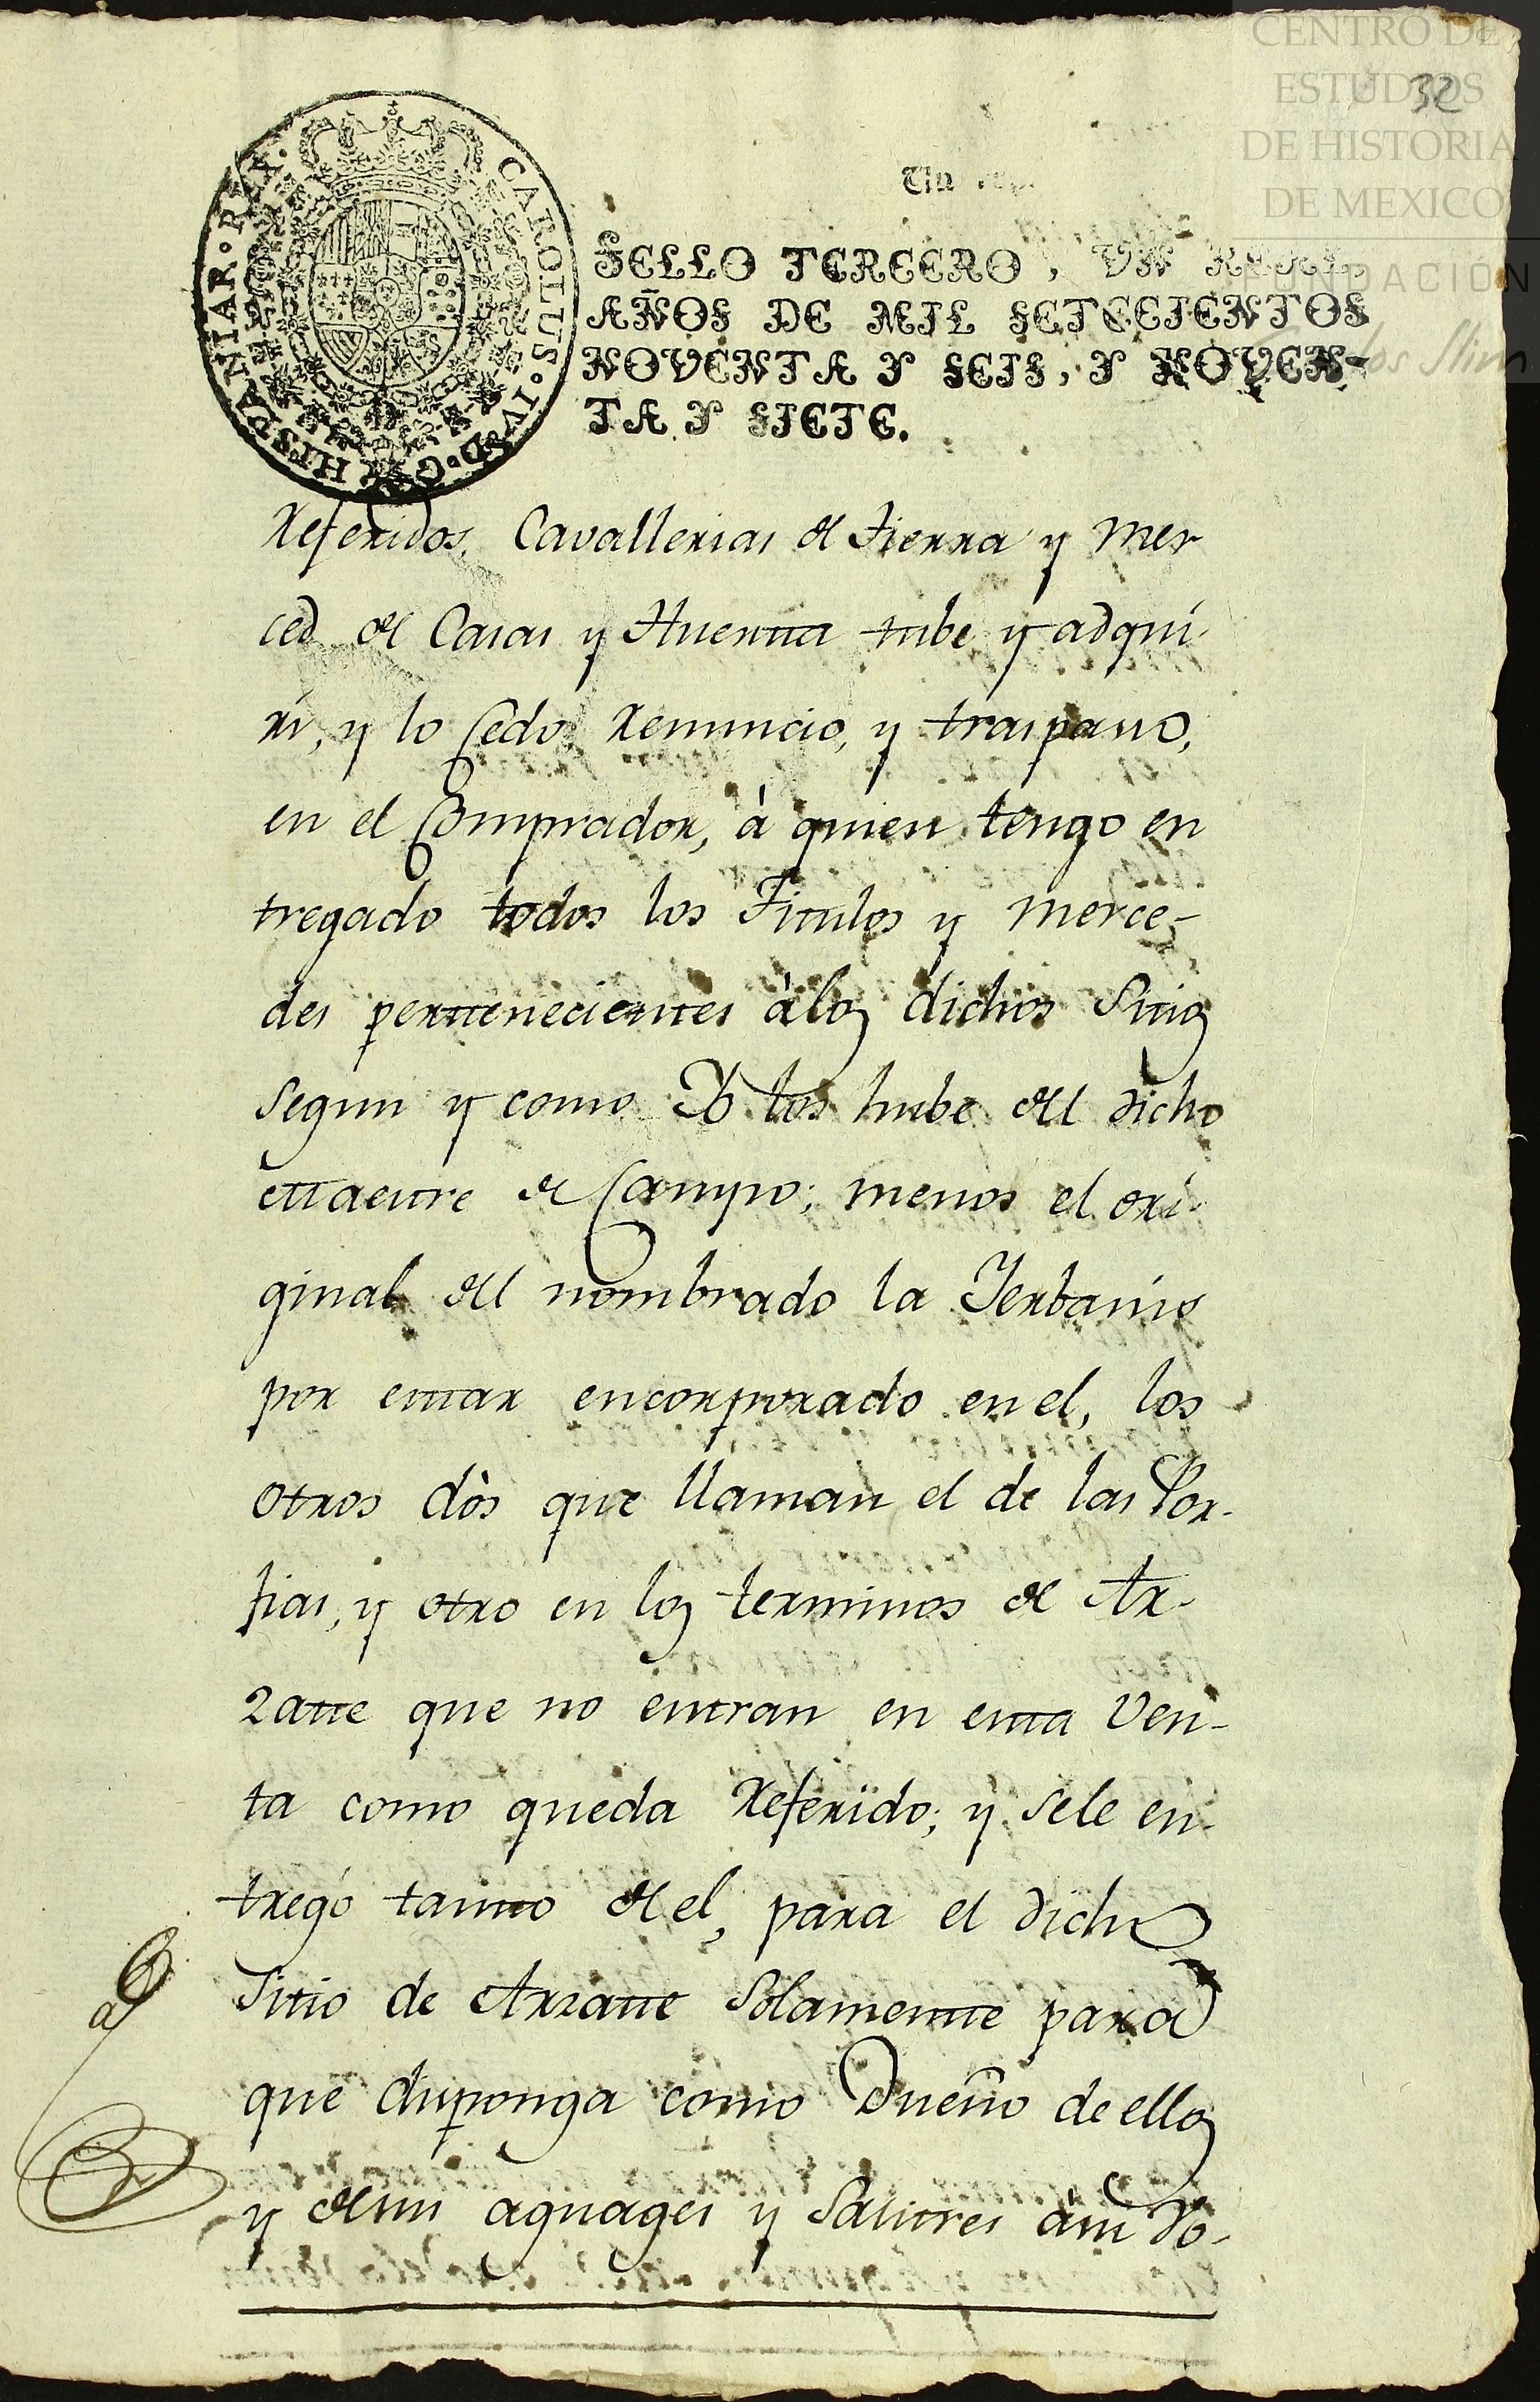 CENTRO DE
ESTUDIOS
DE HISTORIA
DE MEXICO
FUNDACIÓN
Carlos Slim
32
CAROLUS·IV·D·G·HISPANIAR·REX·
Un
SELLO TERCERO, VN REAL,
AÑOS DE MIL SETECIENTOS
NOVENTA Y SEIS, Y NOVEN-
TA Y SIETE.
Referidos, Cavallerias de Tierra y Mer
ced de Casas y Huerta tube y adqui-
ri, y lo Cedo, Renuncio, y traspasso,
en el Comprador, à quien tengo en
tregado todos los Titulos y merce-
des pertenecientes àlos dichos Sitios
segun y como Yo los hube del dicho
Maestre de Campo; menos el ori-
ginal del nombrado la Yerbanis
por estar encorporado en el, los
otros dòs que llaman el de las Por-
fias, y otro en los terminos de Ar-
zate que no entran en esta Ven-
ta como queda Referido; y sele en-
tregó tanto de el, para el dicho
Sitio de Arzate Solamente para
que disponga como Dueño de ellos
y desus aguages y Salitres àsu Vo-